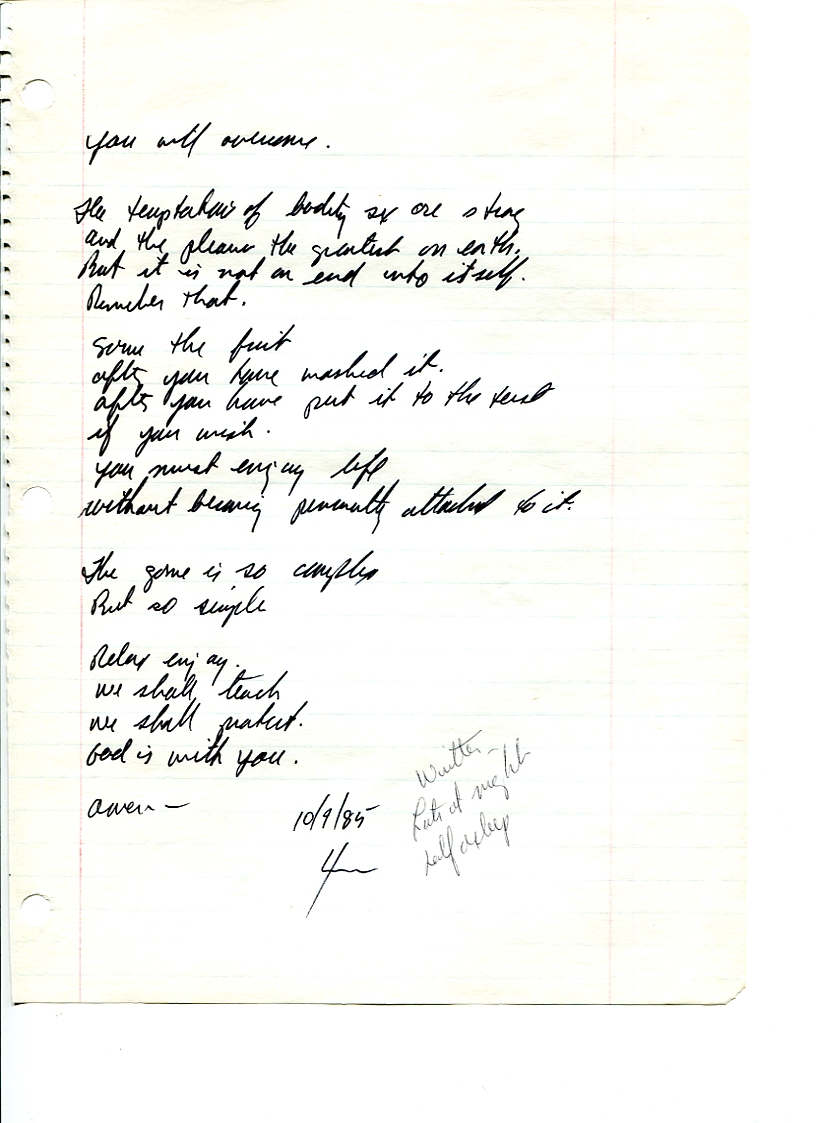 you will overcome.
The temptations of bodily sex are strong
and the pleasure the greatest on earth.
But it is not an end into itself.
Remember that.
the fruit
after you have washed it.
after you have put it to the test
if you wish.
you must enjoy life
without becoming personally attached to it.
The game is so complex
But so simple
Relax enjoy.
we shall teach
we shall protect.
God is with you.
amen —
10/9/85
Written —
Late at night
half asleep